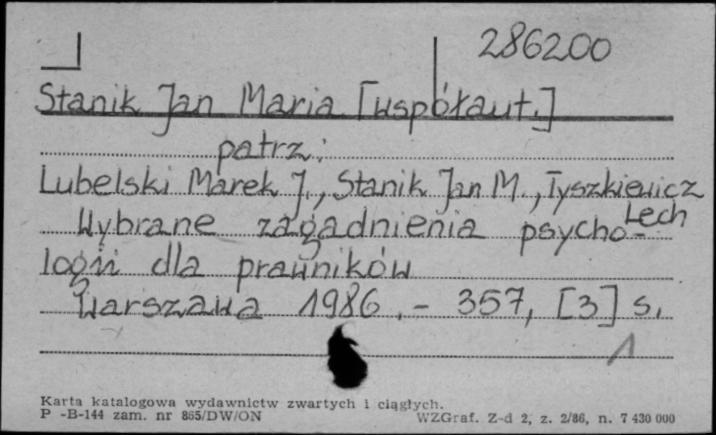 286200
Stanik Jan Maria [współaut.]
patrz:
Lubelski Marek J., Stanik Jan M., Tyszkiewicz
Lech
Wybrane zagadnienia psycho-
logii dla prawników
Warszawa 1986. - 357, [3] s.
1
Karta katalogowa wydawnictw zwartych i ciągłych.
P -B-144 zam. nr 865/DW/ON WZGraf. Z-d 2, z. 2/86, n. 7 430 000